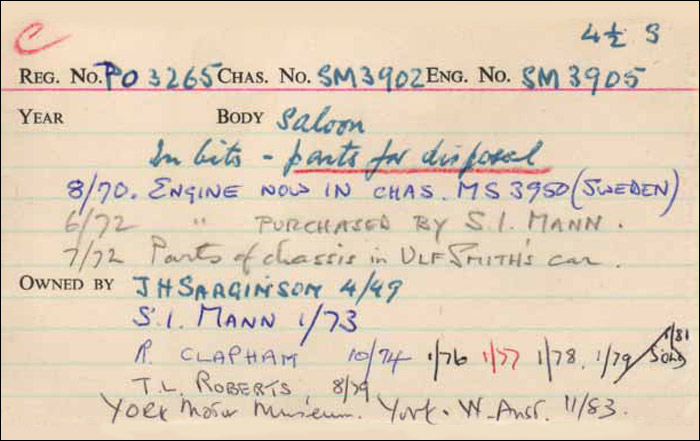 C
4½ S
REG. NO. PO 3265 CHAS. NO. SM3902 ENG. NO. SM 3905
YEAR BODY Saloon
In bits - parts for disposal
8/70. ENGINE NOW IN CHAS. MS 3950 (SWEDEN)
6/72 " PURCHASED BY S.I. MANN.
7/72 Parts of chassis in ULF SMITH'S car.
OWNED BY J H SARGINSON 4/49
S.I. MANN 1/73
R. CLAPHAM 10/74 1/76 1/77 1/78, 1/79 1/81 Sold
T.L. ROBERTS 8/79
York Motor Museum. York. W. Aust. 11/83.